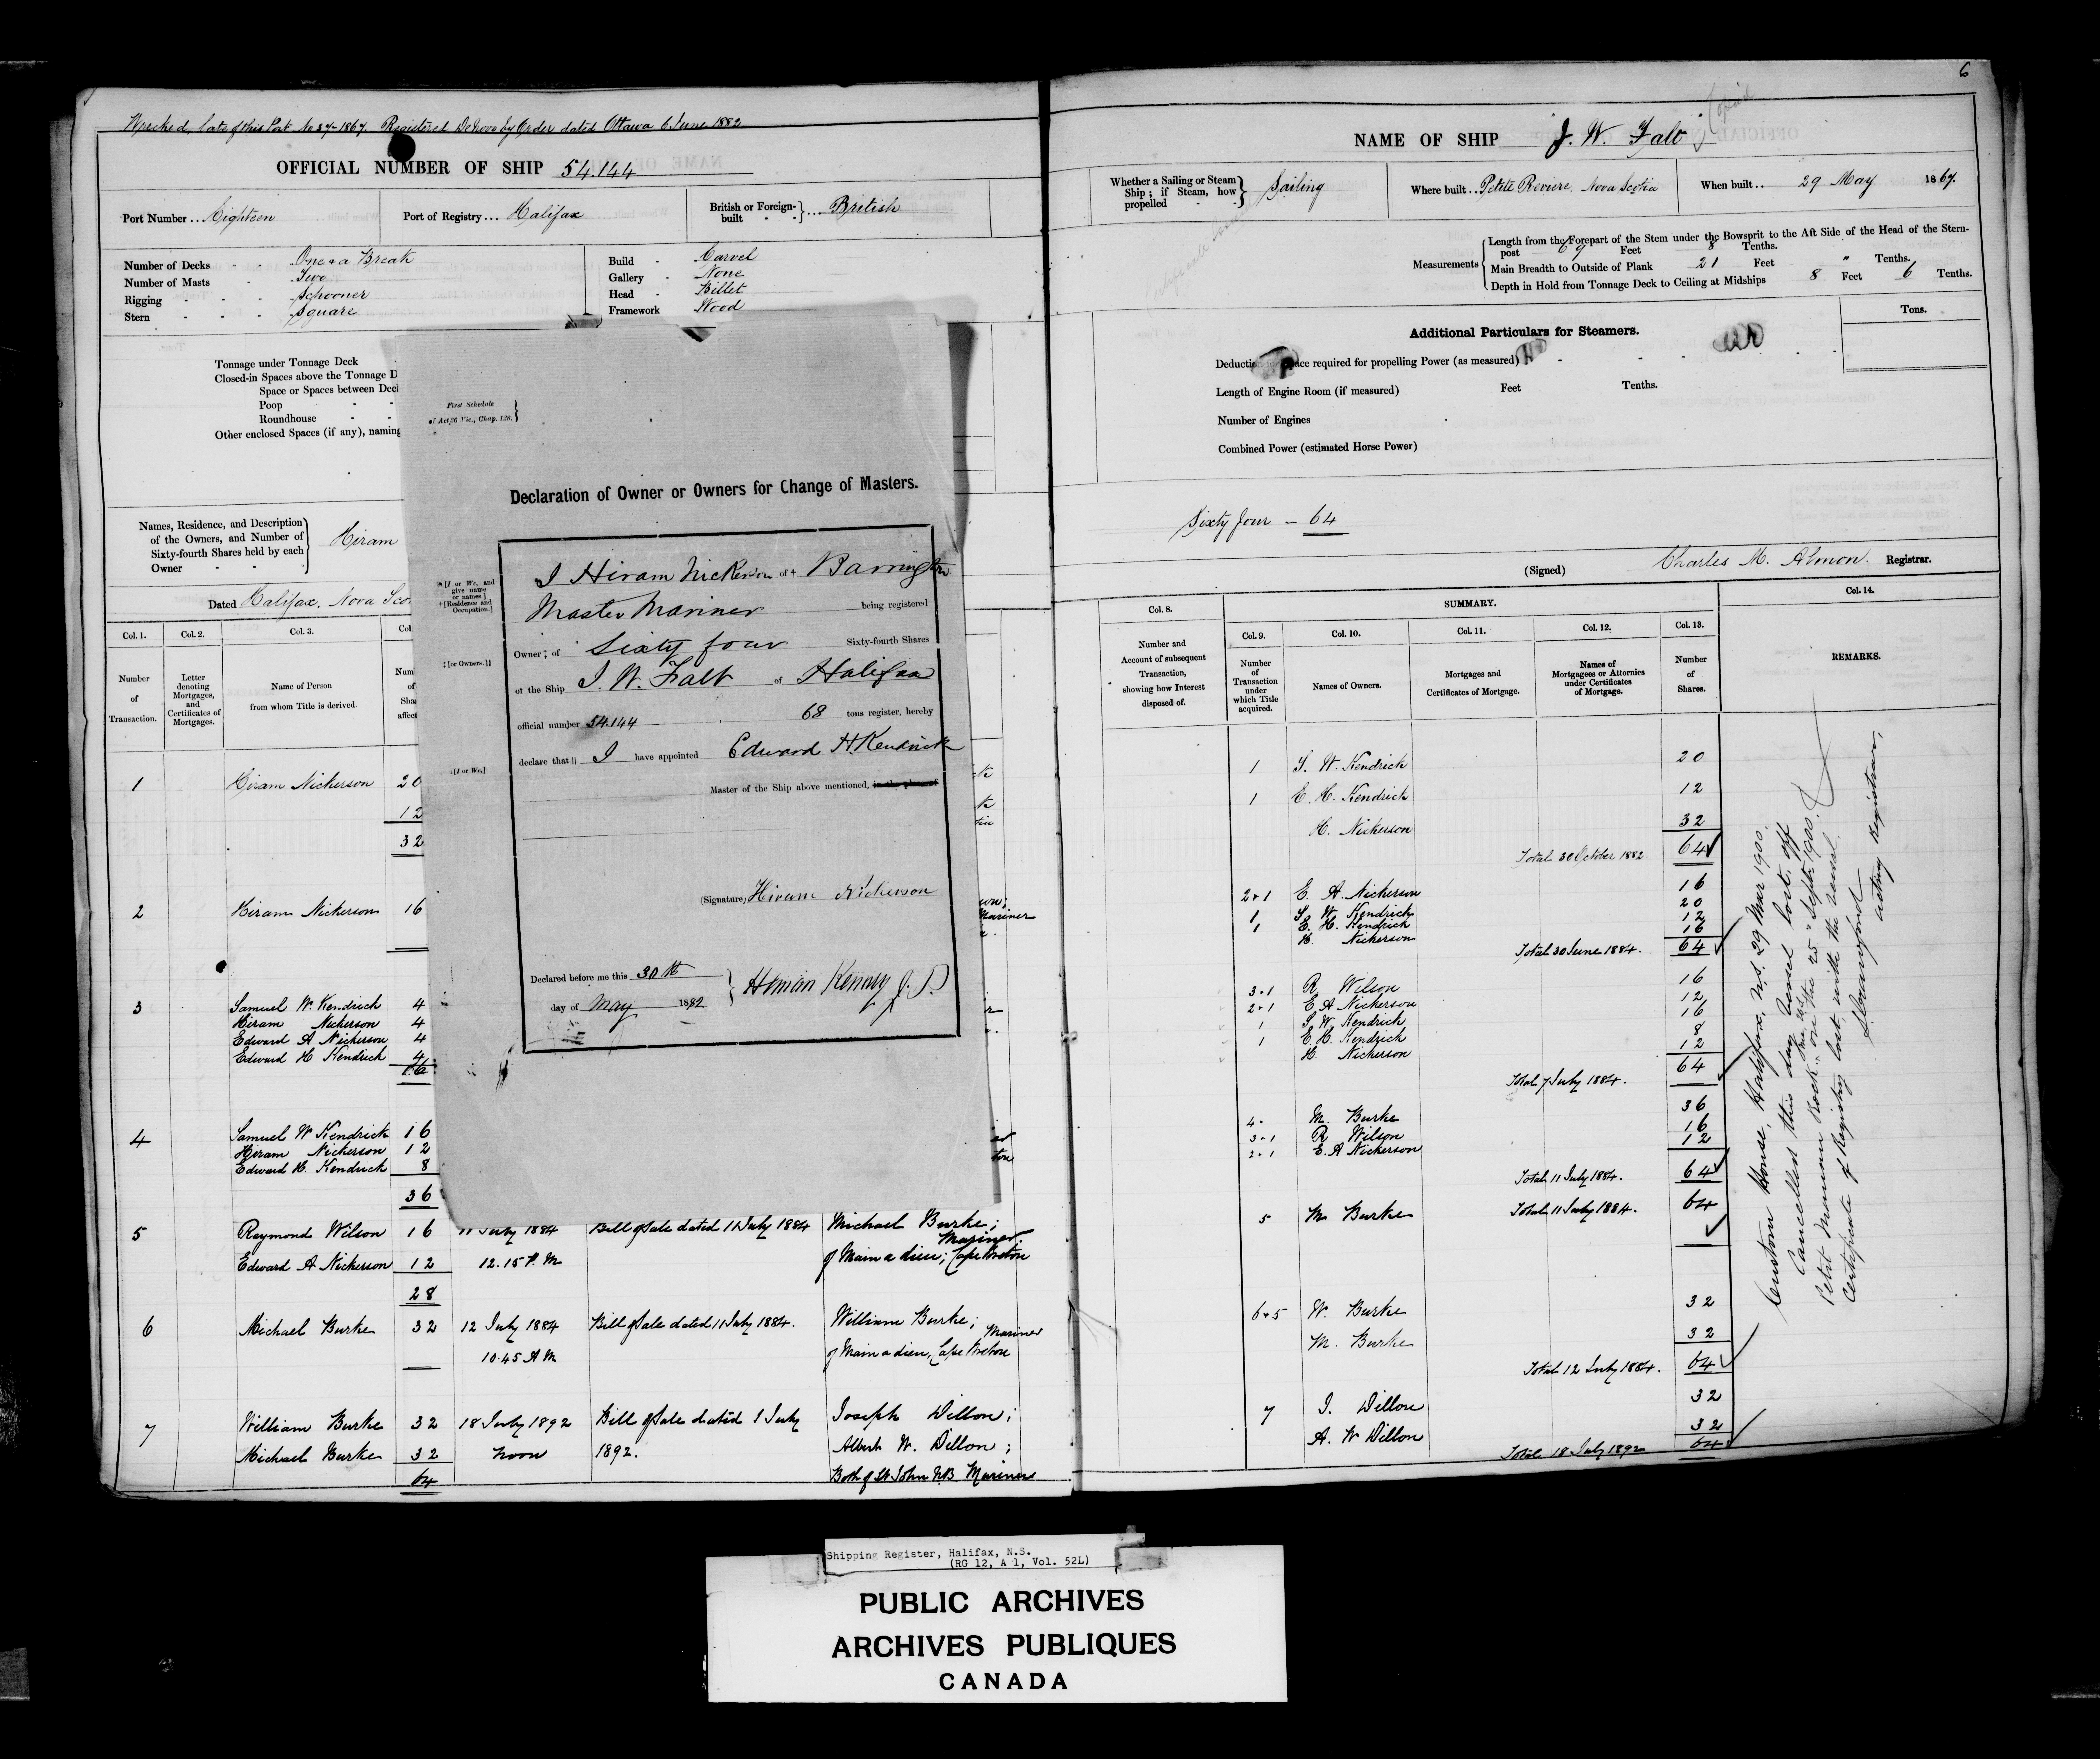 Wrecked, late of this Port No 37-1867. Registered De Novo by Order dated Ottawa 6 June 1882
OFFICIAL NUMBER OF SHIP 54.144
Port Number ... Eighteen
Port of Registry ... Halifax
British or Foreign-built } ... British
Number of Decks - - One & a Break
Number of Masts - - Two
Rigging - - - Schooner
Stern - - - Square
Build - Carvel
Gallery - None
Head - Billet
Framework Wood
Tonnage under Tonnage Deck
Closed-in Spaces above the Tonnage D
Space or Spaces between Dec
Poop - -
Roundhouse - -
Other enclosed Spaces (if any), naming
Names, Residence, and Description
of the Owners, and Number of
Sixty-fourth Shares held by each
Owner - -
Hiram
Dated Halifax, Nova Sco
Col. 1. Col. 2. Col. 3. Col
Number of Transaction.
Letter denoting Mortgages, and Certificates of Mortgages.
Name of Person from whom Title is derived.
1 Hiram Nickerson 20
12
32
2 Hiram Nickerson 16
Mariner
3 Samuel W. Kendrick 4
Hiram Nickerson 4
Edward A Nickerson 4
Edward H Kendrick 4
16
4 Samuel W Kendrick 16
Hiram Nickerson 12
Edward H. Kendrick 8
36
5 Raymond Wilson 16 11 July 1884 Bill of Sale dated 11 July 1884 Michael Burke;
Mariner
Edward A Nickerson 12 12.15 P.M of Main a dieu; Cape Breton
28
6 Michael Burke 32 12 July 1884 Bill of Sale dated 11 July 1884. William Burke;
Mariner
10.45 A M of Main a dieu, Cape Breton
7 William Burke 32 18 July 1892 Bill of Sale dated 1 July Joseph Dillon;
Michael Burke 32 noon 1892. Albert W. Dillon;
64 Both of St John NB Mariners
First Schedule
of Act 36 Vic., Chap. 128.
Declaration of Owner or Owners for Change of Masters.
*[I or We, and give name or names.]
+[Residence and Occupation.]
I Hiram Nickerson of + Barrington
Master Mariner being registered
‡[or Owners.]
Owner ‡ of Sixty four Sixty-fourth Shares
of the Ship J. W. Falt of Halifax
official number 54.144 68 tons register, hereby
||[I or We.]
declare that || I have appointed Edward H. Kendrick
Master of the Ship above mentioned, in the place of
(Signature) Hiram Nickerson
Declared before me this 30th
day of May 1882
Heman Kenney J.P.
6
NAME OF SHIP J. W. Falt
Whether a Sailing or Steam Ship; if Steam, how propelled } Sailing
Where built .. Petite Reviere, Nova Scotia
When built .. 29 May 1867.
Measurements
Length from the Forepart of the Stem under the Bowsprit to the Aft Side of the Head of the Stern-
post 69 Feet 8 Tenths.
Main Breadth to Outside of Plank 21 Feet " Tenths.
Depth in Hold from Tonnage Deck to Ceiling at Midships 8 Feet 6 Tenths.
Additional Particulars for Steamers.
Tons.
Deduction space required for propelling Power (as measured)
Length of Engine Room (if measured) Feet Tenths.
Number of Engines
Combined Power (estimated Horse Power)
Sixty four - 64
(Signed) Charles M. Almon. Registrar.
SUMMARY.
Col. 8. Col. 9. Col. 10. Col. 11. Col. 12. Col. 13. Col. 14.
Number and Account of subsequent Transaction, showing how Interest disposed of.
Number of Transaction under which Title acquired.
Names of Owners.
Mortgages and Certificates of Mortgage.
Names of Mortgagees or Attornies under Certificates of Mortgage.
Number of Shares.
REMARKS.
1 S. W. Kendrick 20
1 E. H. Kendrick 12
H. Nickerson 32
Total 30 October 1882 64
2+1 E. A. Nickerson 16
1 S. W. Kendrick 20
1 E. H. Kendrick 12
H. Nickerson 16
Total 30 June 1884. 64
3+1 R. Wilson 16
2+1 E. A Nickerson 12
1 S. W. Kendrick 16
1 E. H. Kendrick 8
H. Nickerson 12
Total 7 July 1884. 64
4. M. Burke 36
3+1 R Wilson 16
2+1 E. A Nickerson 12
Total 11 July 1884. 64
5 M. Burke Total 11 July 1884. 64
6+5 W. Burke 32
M. Burke 32
Total 12 July 1884. 64
7 J. Dillon 32
A. W Dillon 32
Total 18 July 1892 64
Custom House, Halifax, N.S. 29 Mar 1900.
Cancelled this day Vessel lost off
Petit Menan Rock on the 25" Sept 1900.
Certificate of Registry lost with the vessel.
Acting Registrar,
Shipping Register, Halifax, N.S.
(RG 12, A 1, Vol. 52L)
PUBLIC ARCHIVES
ARCHIVES PUBLIQUES
CANADA